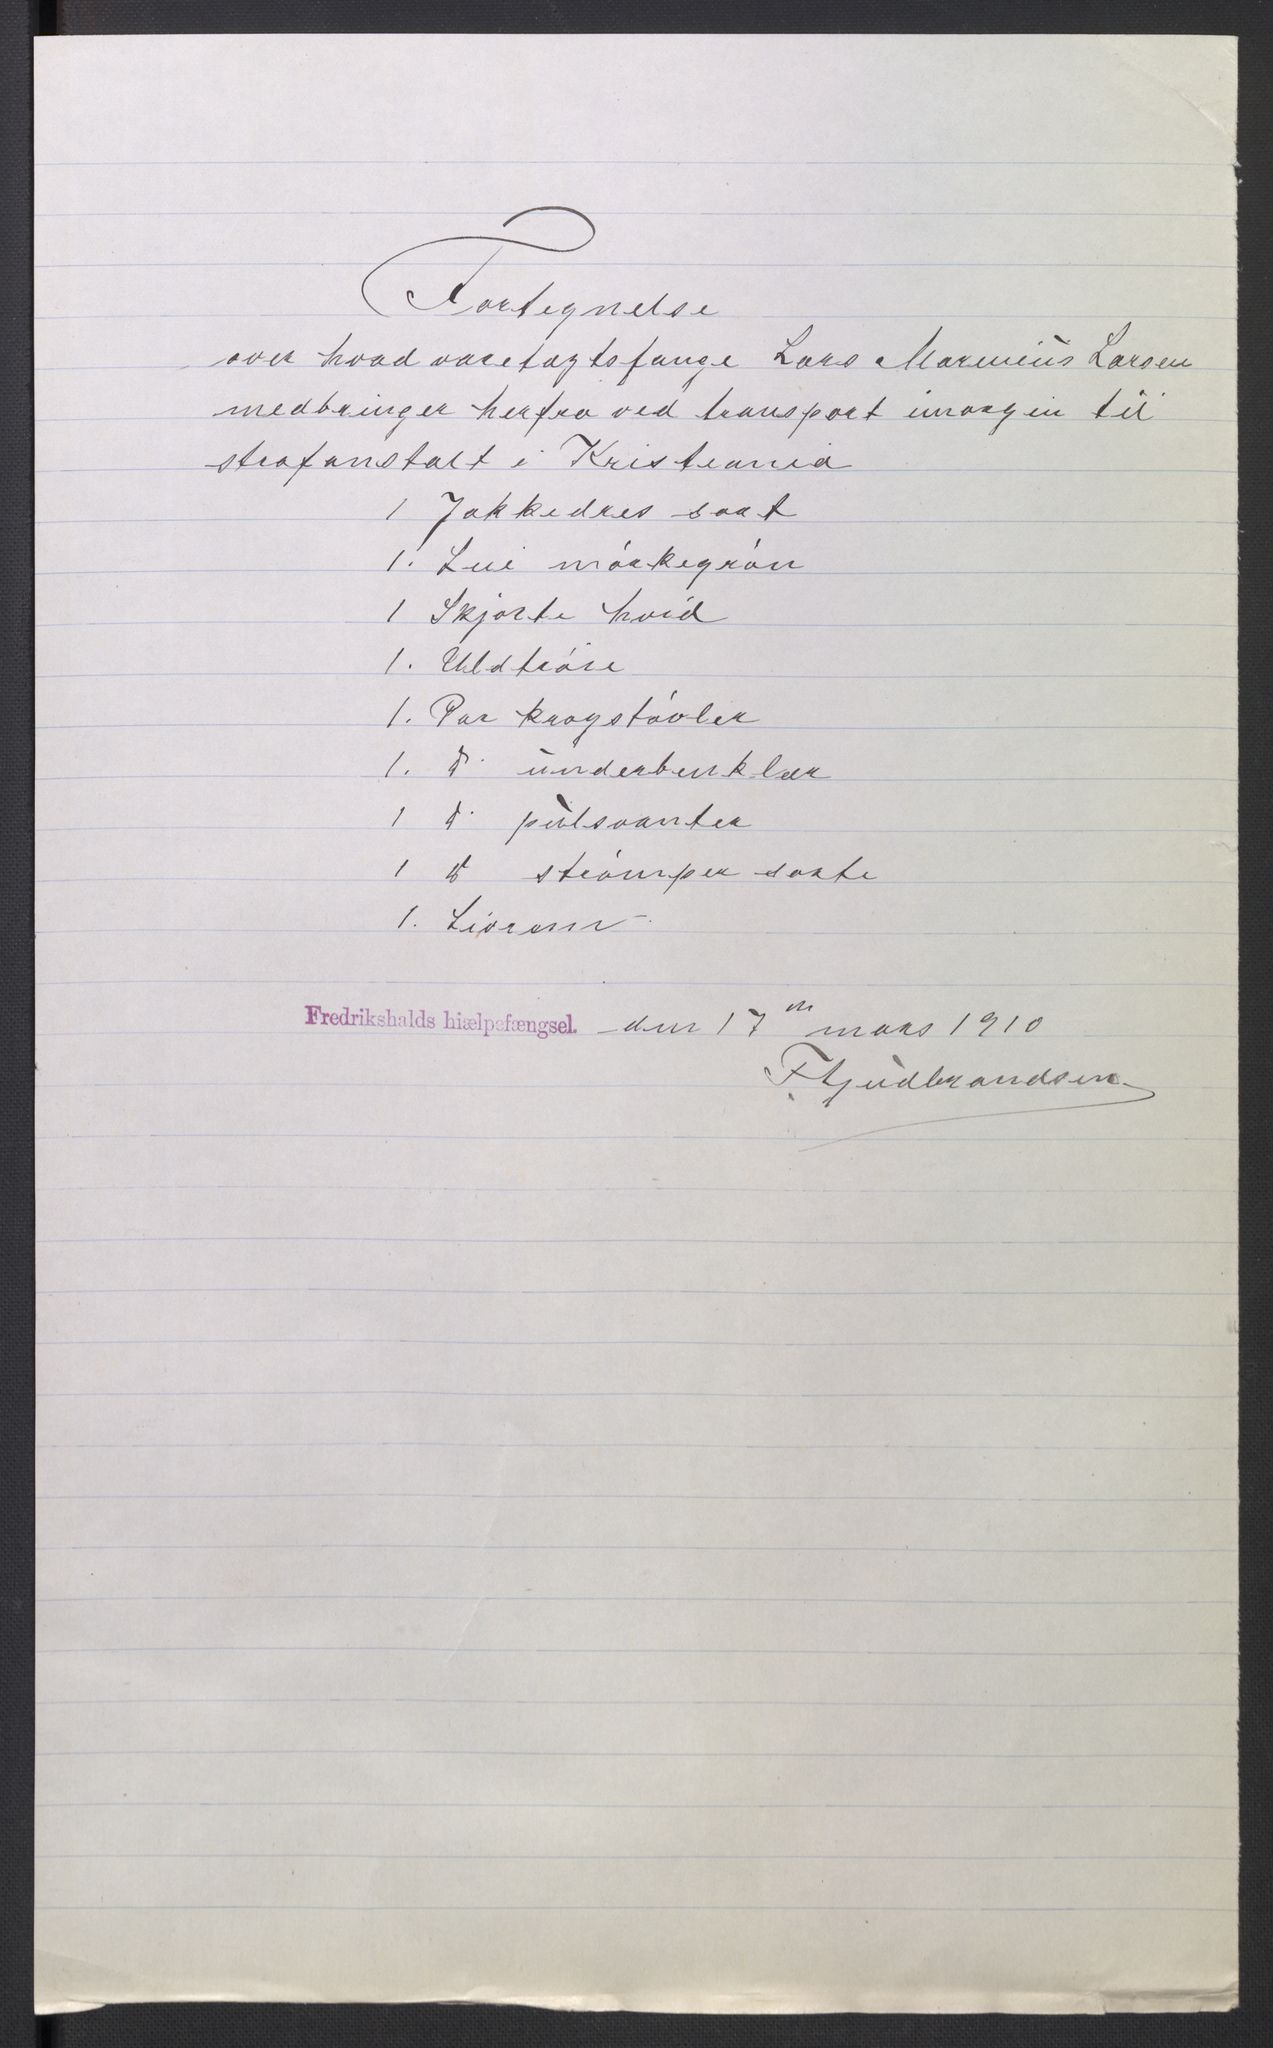 Fortegnelse
over hvad varetægtsfange Lars Marenius Larsen
medbringer herfra ved transport imorgen til
strafanstalt i Kristiania
1 Jakkedres sort
1. Lue mórkegrón
1 Skjorte hvid
1. Uldtróie
1. Par kragstóvler
1. do underbenklær
1 do pulsvanter
1 do strómper sorte
1. Livrem
Fredrikshalds hiælpefængsel. den 17 en mars 1910
F Gudbrandsen